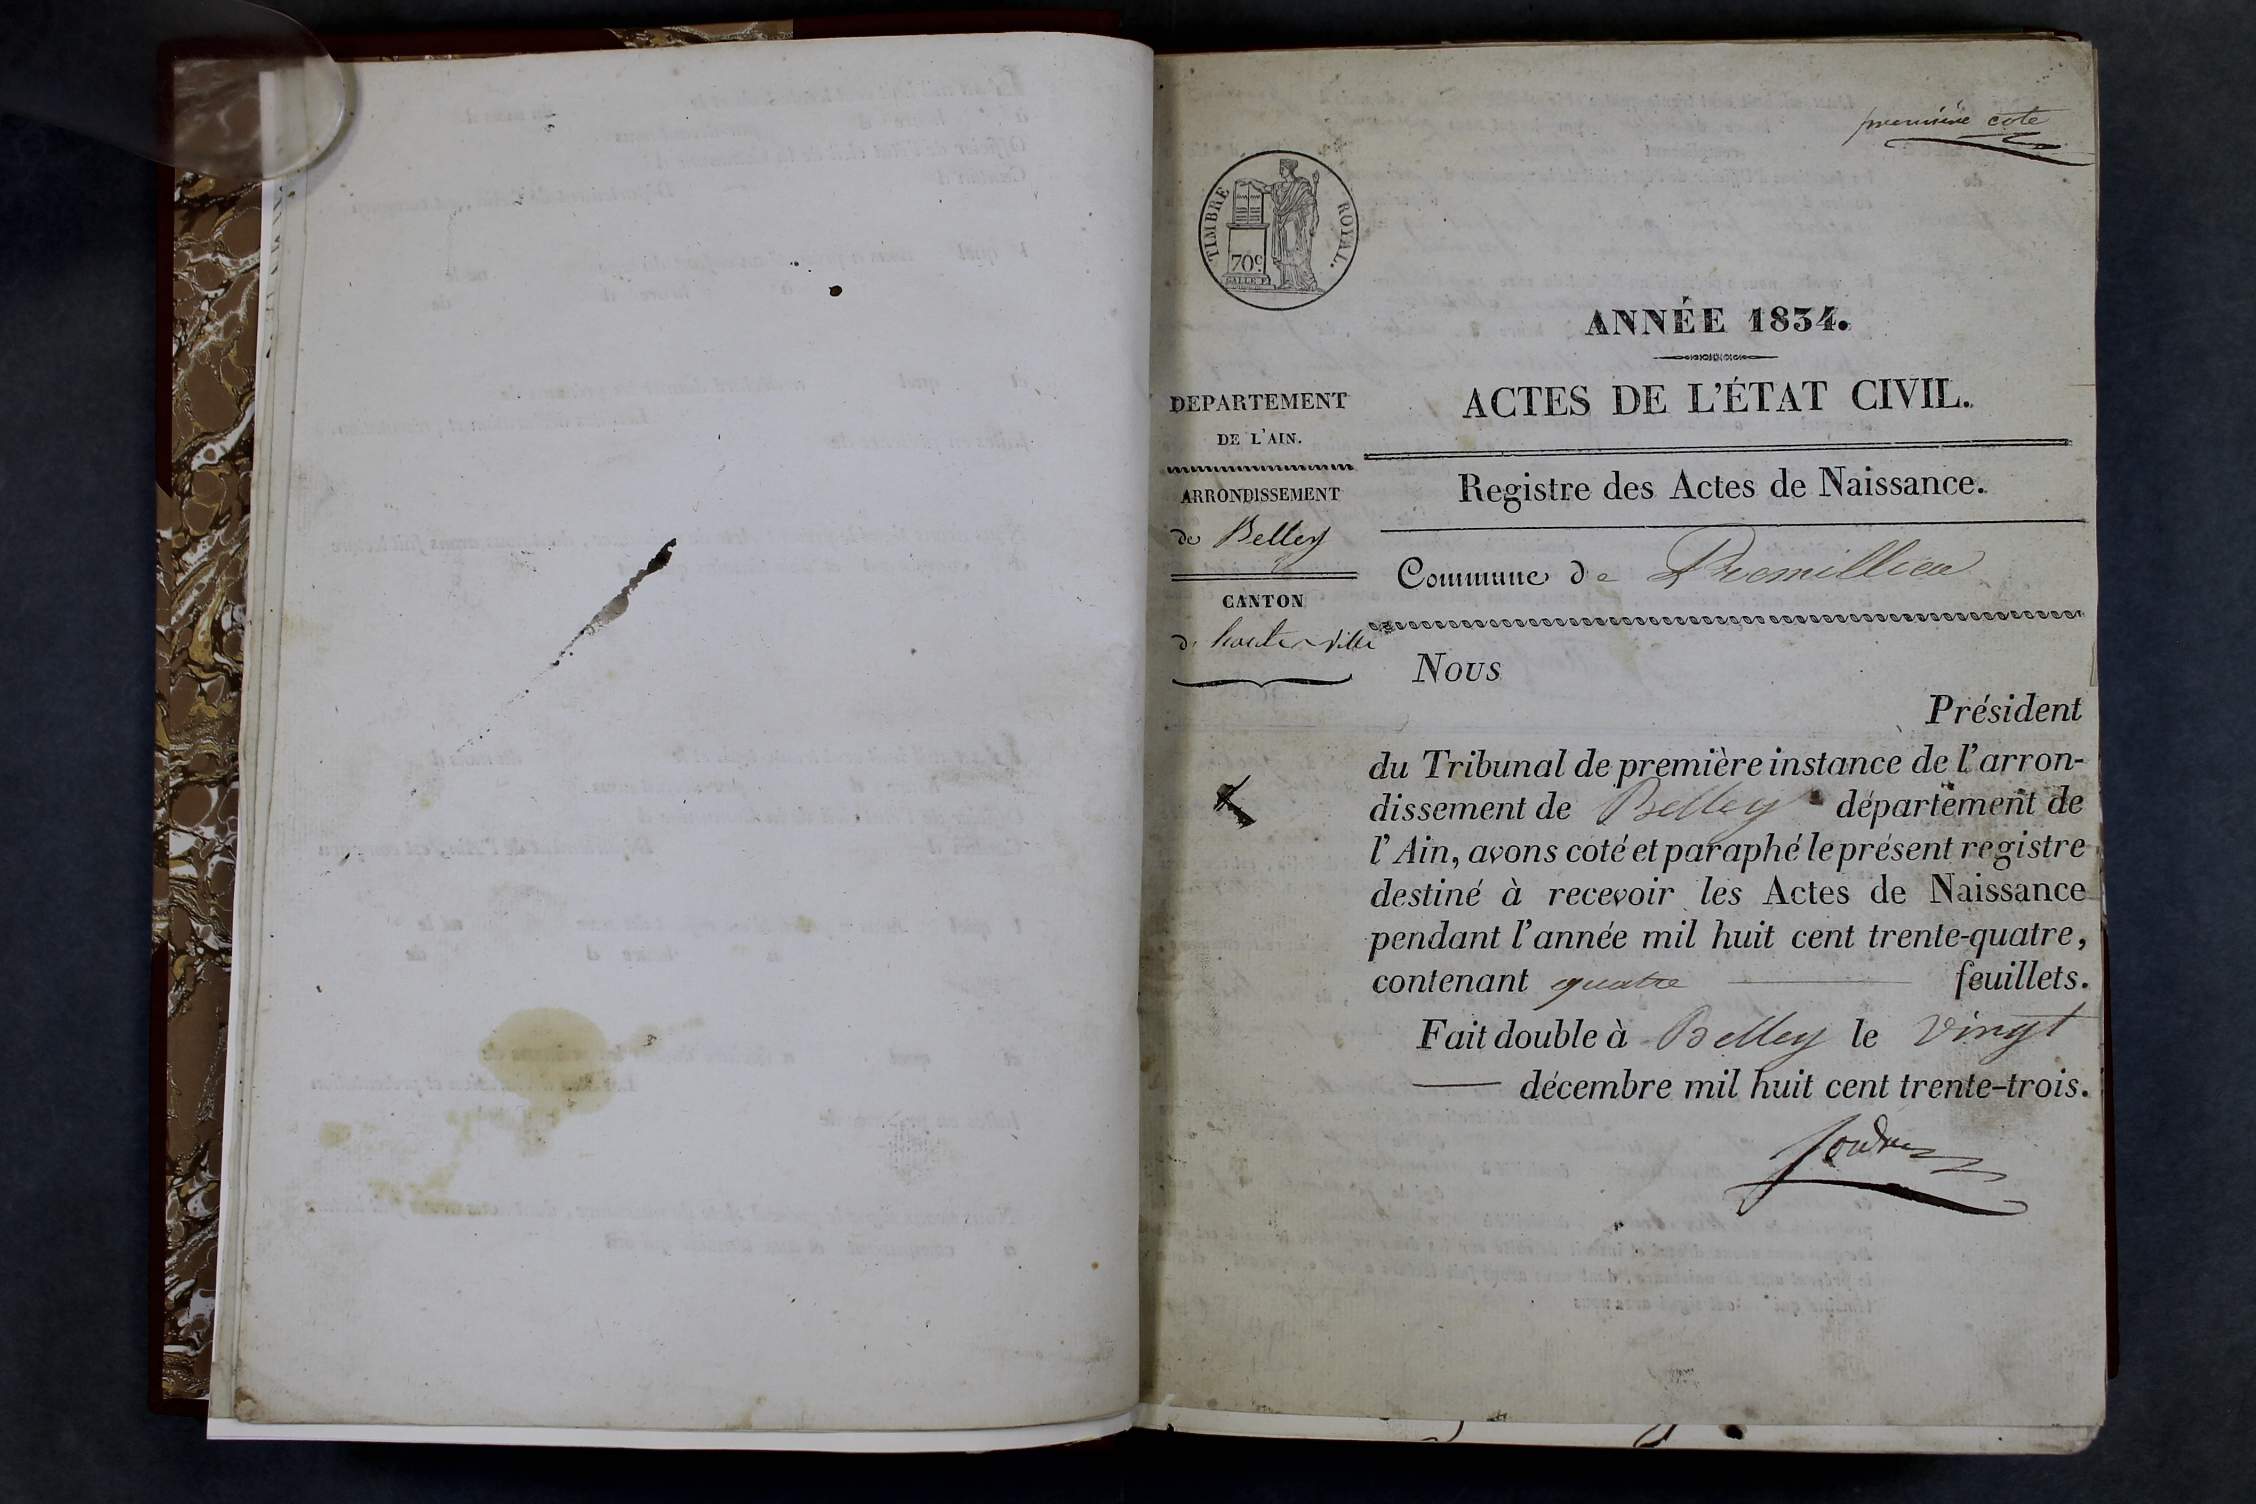 première cote
TIMBRE ROYAL.
70c
ANNÉE 1834.
ACTES DE L'ÉTAT CIVIL.
Registre des Actes de Naissance.
DEPARTEMENT
DE L'AIN.
ARRONDISSEMENT
de Belley
CANTON
d' hauteville
Commune de Premillieu
Nous
Président
du Tribunal de première instance de l'arron-
dissement de Belley département de
l'Ain, avons coté et paraphé le présent registre
destiné à recevoir les Actes de Naissance
pendant l'année mil huit cent trente-quatre,
contenant quatre feuillets.
Fait double à Belley le vingt
décembre mil huit cent trente-trois.